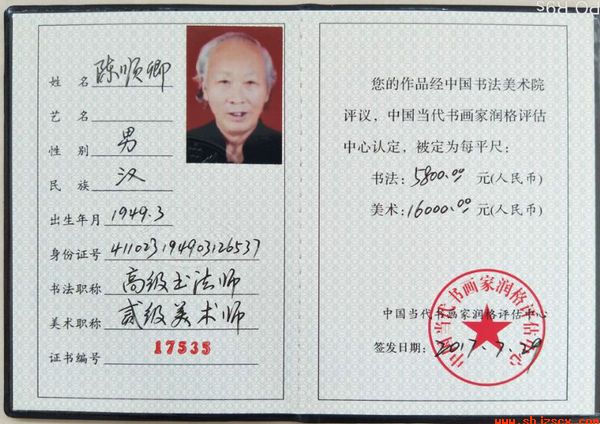 姓名 陈顺卿
艺名
性别 男
民族 汉
出生年月 1949.3
身份证号 411023194903126537
书法职称 高级书法师
美术职称 贰级美术师
证书编号 17535
您的作品经中国书法美术院
评议，中国当代书画家润格评估
中心认定，被定为每平尺：
书法：5800.00 元(人民币)
美术：16000.00 元(人民币)
中国当代书画家润格评估中心
中国当代书画家润格评估中心
签发日期：2017.7.29
www.shjzscx.com